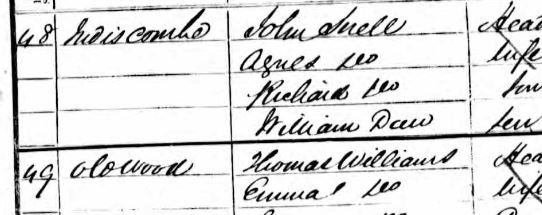 48 Indiscombe John Snell Head
Agnes do Wife
Richard do Son
William Daw Serv
49 Old Wood Thomas Williams Head
Emma do Wife